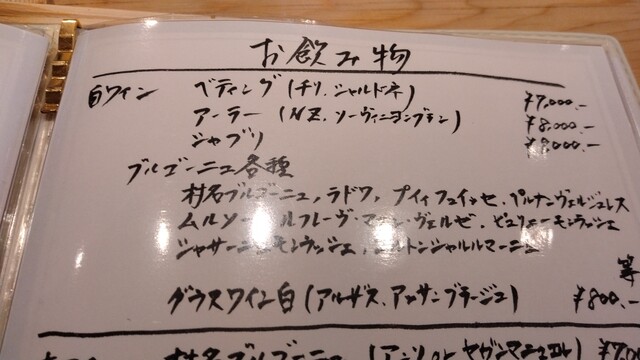 お飲み物
白ワイン ベティング(チリ、シャルドネ) ¥7,000.-
アーラー(NZ、ソーヴィニヨンブラン) ¥8,000.-
シャブリ ¥8,000.-
ブルゴーニュ各種
村名ブルゴーニュ、ラドワ、プイィフュイッセ、ペルナンヴェルジュレス
ムルソー ルフレーヴ・マコン・ヴェルゼ、ピュリニーモンラッシェ
シャサーニュモンラッシェ、コルトンシャルルマーニュ
等
グラスワイン白(アルザス、アッサンブラージュ) ¥800.-
村名ブルゴーニュ